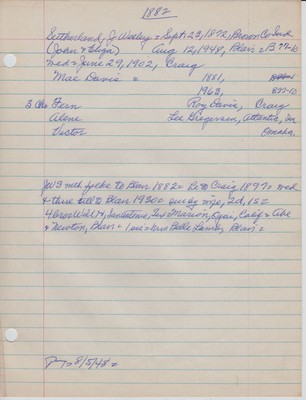 1882
Sutherland, J. Wesley = Sept. 22, 1872, Brown Co Ind
(John & Eliza) Aug 12, 1948, Blair = B
med = June 29, 1902, Craig
Mae Davis = 1881,
1963,
3 Ch = Fern Roy Davis, Craig
Alene Lee Gregersen, Atlantic, Ia
Victor Omaha
JWS mch folks to Blair 1882 = Re to Craig 1897 = med
& thre till to Blair 1930 = surby mje, 3d, 1 s =
4 bros Will H, Sandstone, Marion, Ojai, Calif = Abe
& Newton, Blair = 1 sis = Mrs Belle Blair =
8/5/48 =